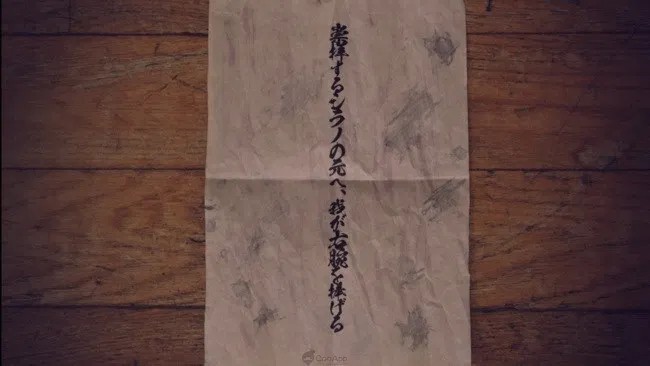 崇拝する の元へ、我が右腕を捧げる
QooApp